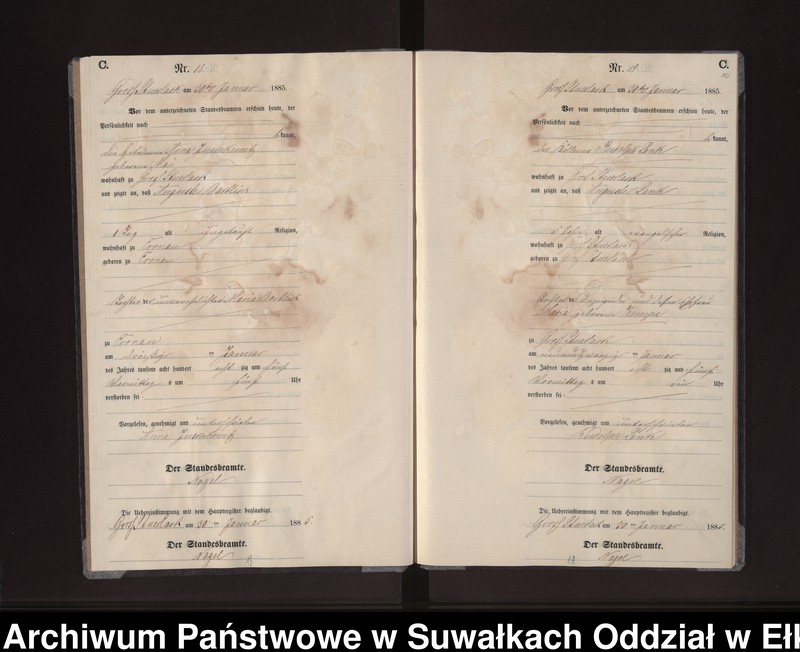 C.
Nr. 18.
Groß Stürlack am 30ten Januar 1885.
Vor dem unterzeichneten Standesbeamten erschien heute, der
Persönlichkeit nach
kannt,
die Hebamme Anna
geborene
wohnhaft zu Groß Stürlack
und zeigte an, daß Auguste
1 Tag alt Religion,
wohnhaft zu Cronau
geboren zu Cronau
Tochter der unverehelichten Maria
zu Cronau
am ten Januar
des Jahres tausend acht hundert acht zig und fünf
Vormittag s um fünf Uhr
verstorben sei
Vorgelesen, genehmigt und unterschrieben
Anna
Der Standesbeamte.
Nagel
Die Uebereinstimmung mit dem Hauptregister beglaubigt.
Groß Stürlack am 30 ten Januar 1885.
Der Standesbeamte.
Nagel
C.
Nr. 19.
Groß Stürlack am 30ten Januar 1885.
Vor dem unterzeichneten Standesbeamten erschien heute, der
Persönlichkeit nach
kannt,
der
wohnhaft zu Groß Stürlack
und zeigte an, daß Auguste
alt evangelischer Religion,
wohnhaft zu Groß Stürlack
geboren zu Groß Stürlack
Tochter des Anzeigenden und dessen Ehefrau
geborene
zu Groß Stürlack
am neunundzwanzigsten Januar
des Jahres tausend acht hundert acht zig und fünf
Vormittag s um Uhr
verstorben sei
Vorgelesen, genehmigt und unterschrieben
Der Standesbeamte.
Nagel
Die Uebereinstimmung mit dem Hauptregister beglaubigt.
Groß Stürlack am 30 ten Januar 1885.
Der Standesbeamte.
19 Nagel
Archiwum Państwowe w Suwałkach Oddział w Ełk